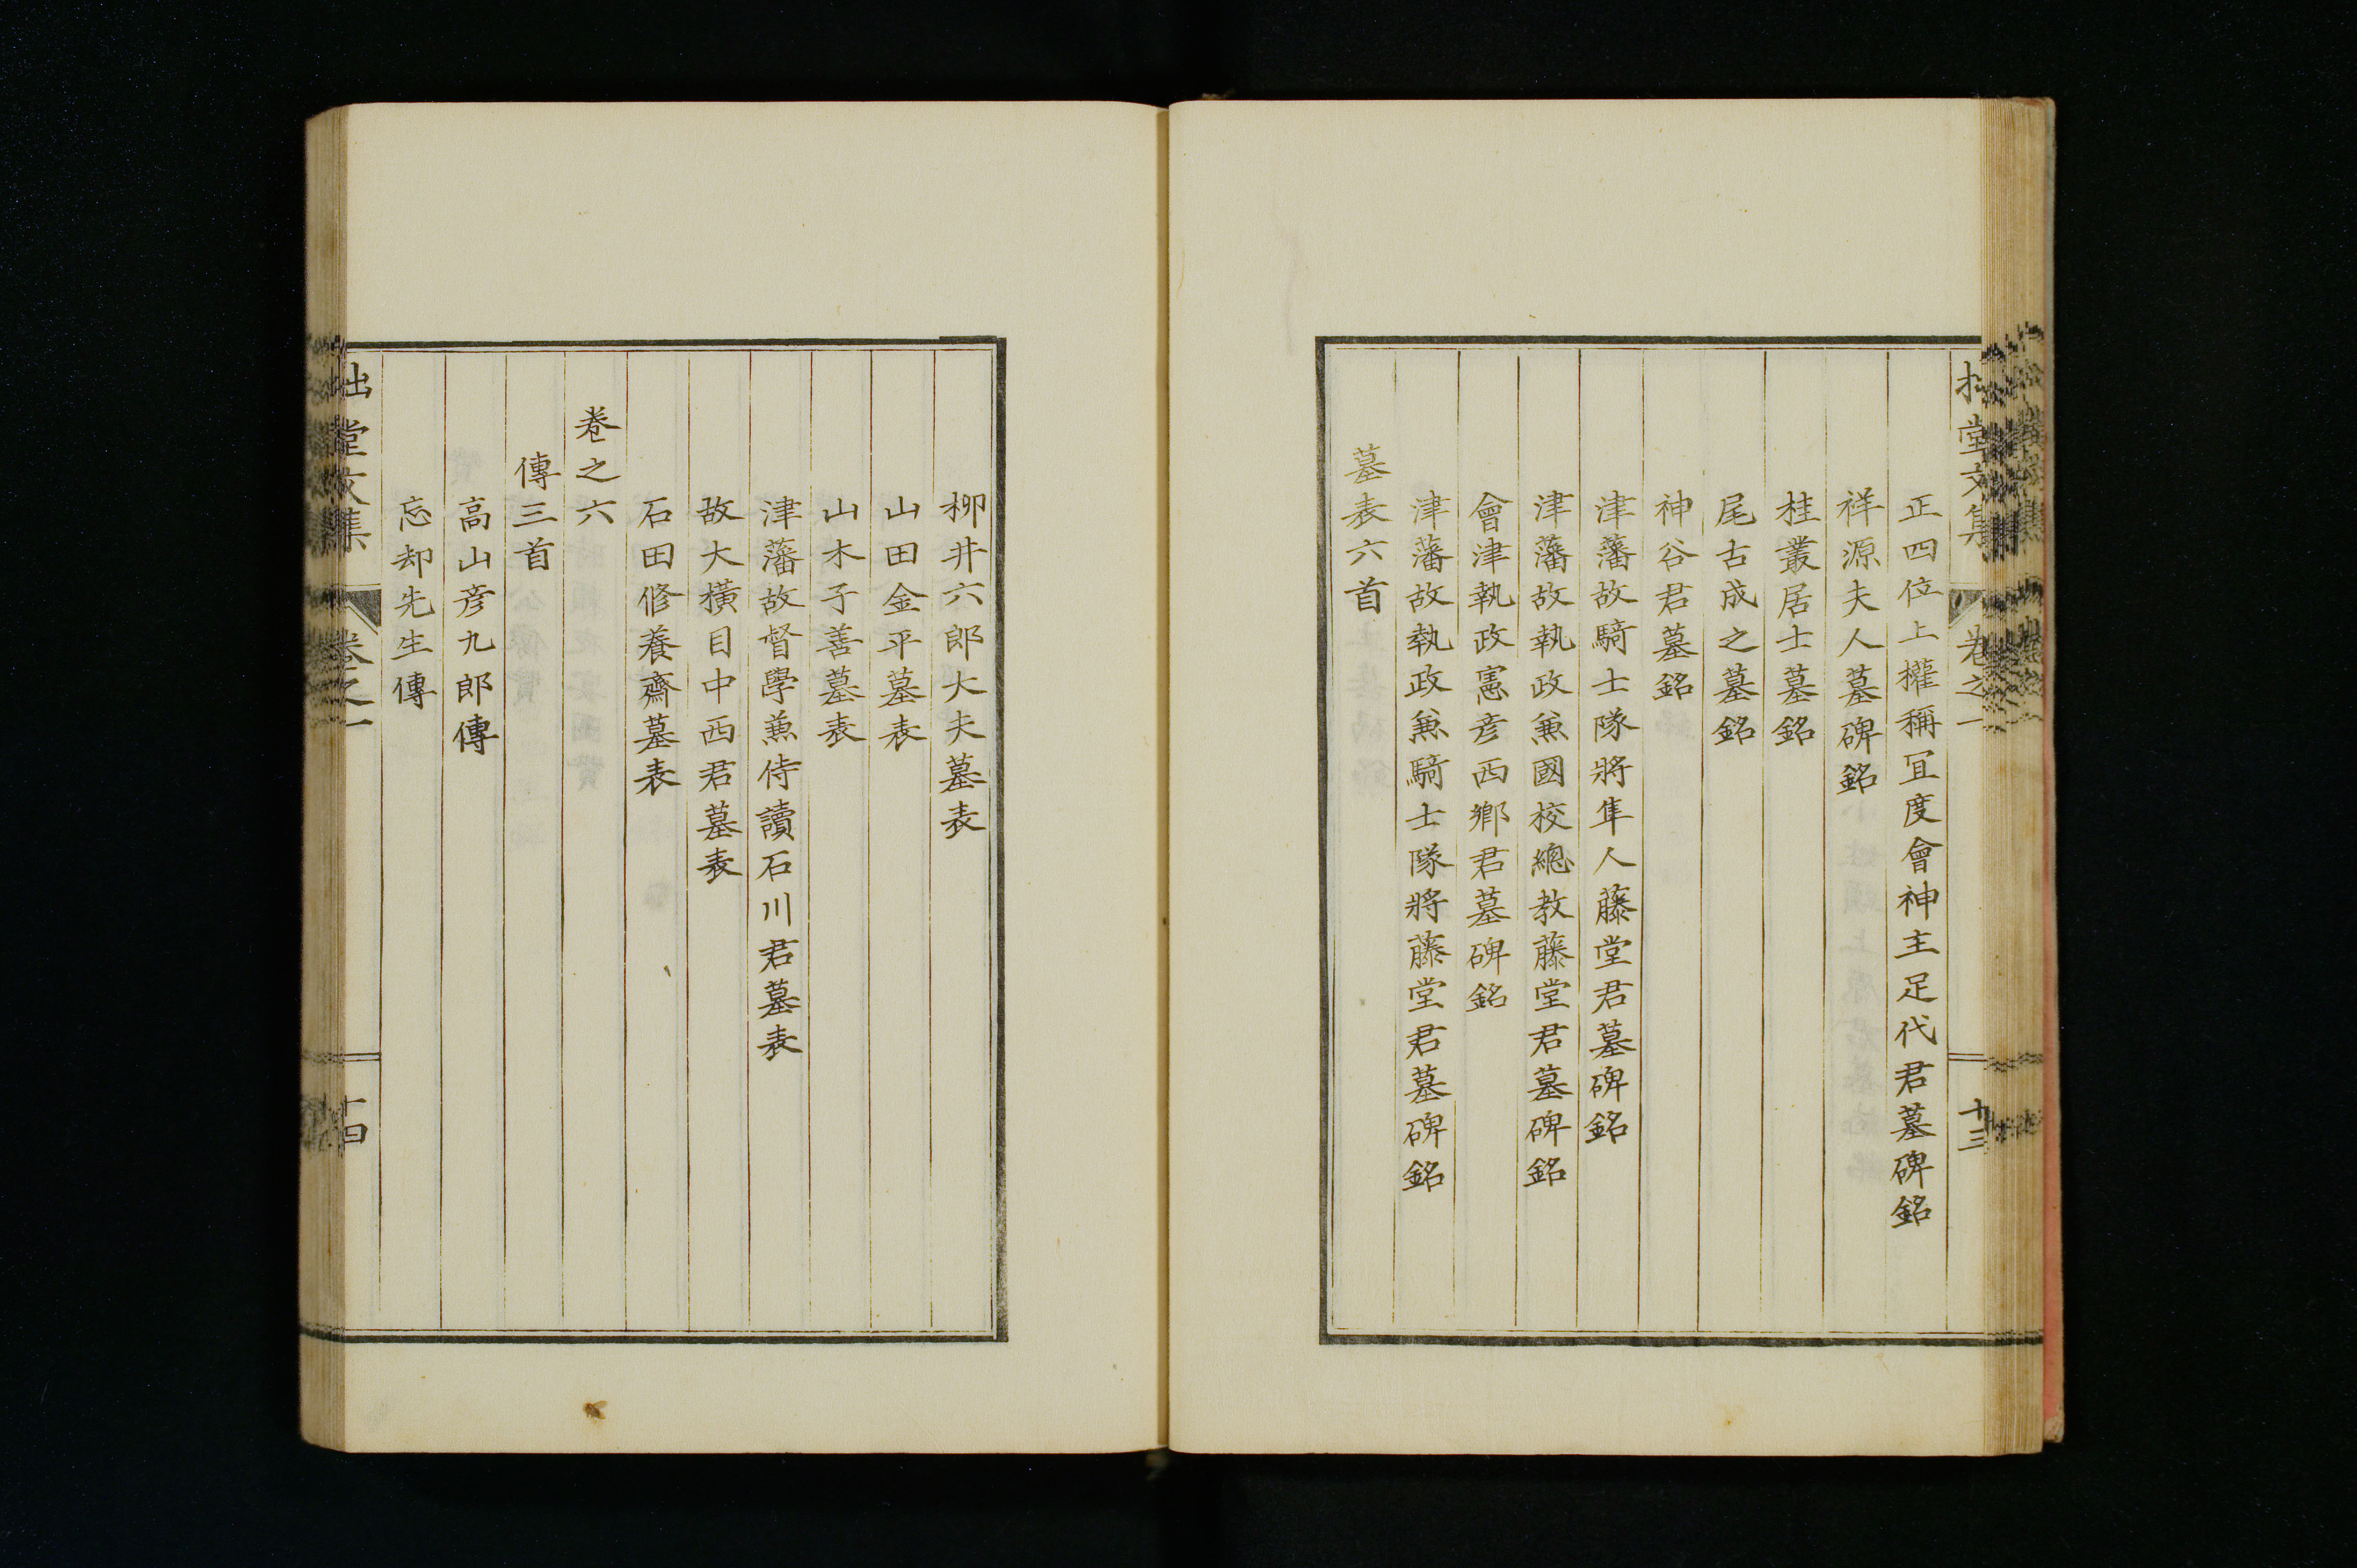 拙堂文集 卷之一 十三
正四位上權稱冝度會神主足代君墓碑銘
祥源夫人墓碑銘
桂叢居士墓銘
尾古成之墓銘
神谷君墓銘
津藩故騎士隊將隼人藤堂君墓碑銘
津藩故執政兼國校總教藤堂君墓碑銘
會津執政憲彦西鄉君墓碑銘
津藩故執政兼騎士隊將藤堂君墓碑銘
墓表六首
柳井六郎大夫墓表
山田金平墓表
山木子善墓表
津藩故督學兼侍讀石川君墓表
故大橫目中西君墓表
石田修養齋墓表
卷之六
傳三首
高山彦九郎傳
忘却先生傳
拙堂文集 卷之一 十四